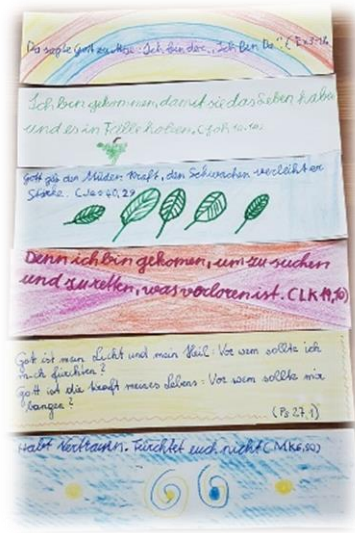 Da sagte Gott zu Mose: Ich bin der „Ich bin Da“. (Ex 3,14
Ich bin gekommen, damit sie das Leben haben
und es in Fülle haben. (Joh 10,10)
Gott gibt dem Müden Kraft, den Schwachen verleiht er
Stärke. (Jes 40,29
Denn ich bin gekomen, um zu suchen
und zu retten, was verloren ist. (LK 19,10)
Gott ist mein Licht und mein Heil: Vor wem sollte ich
mich fürchten?
gott ist die Kraft meines Lebens: Vor wem sollte mir
bangen?
(Ps 27,1)
Habt Vertrauen. Fürchtet euch nicht (MK 6,50)